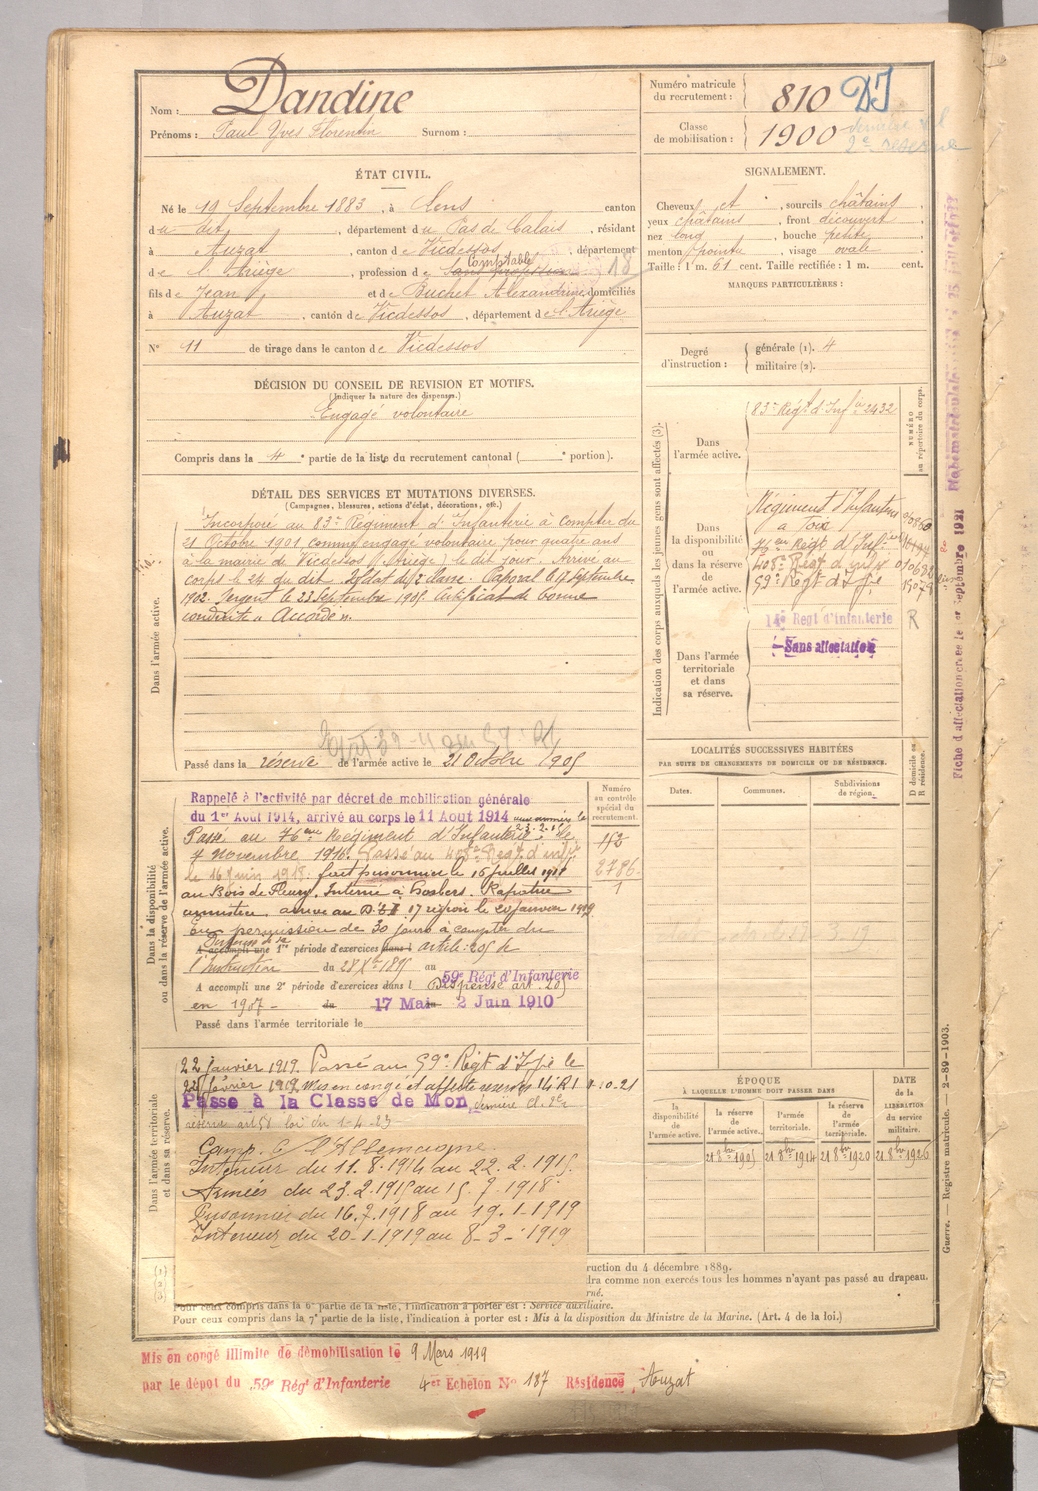 Nom : Dandine
Prénoms : Paul Yves Florentin Surnom :
Numéro matricule du recrutement : 810 DJ
Classe de mobilisation : 1900
2e reserve
ÉTAT CIVIL.
Né le 19 Septembre 1883, à Lens canton
du dit, département du Pas de Calais, résidant
à Auzat, canton de Vicdessos, département
de l'Ariège, profession de Sans profession Comptable 18
fils de Jean et de Buchet Alexandrine, domiciliés
à Auzat, canton de Vicdessos, département de l'Ariège
N° 11 de tirage dans le canton de Vicdessos
SIGNALEMENT.
Cheveux et, sourcils châtains
yeux châtains, front découvert
nez long, bouche petite
menton pointu, visage ovale
Taille : 1 m. 61 cent. Taille rectifiée : 1 m. cent.
MARQUES PARTICULIÈRES :
Degré d'instruction : générale (1). 4
militaire (2).
DÉCISION DU CONSEIL DE REVISION ET MOTIFS.
(Indiquer la nature des dispenses.)
Engagé volontaire
Compris dans la 4e partie de la liste du recrutement cantonal ( e portion).
DÉTAIL DES SERVICES ET MUTATIONS DIVERSES.
(Campagnes, blessures, actions d'éclat, décorations, etc.)
Dans l'armée active.
Incorporé au 83e Régiment d'Infanterie à compter du
21 Octobre 1901 comme engagé volontaire pour quatre ans
à la mairie de Vicdessos (Ariège) le dit jour. Arrivé au
corps le 24 du dit. Soldat de 2e classe. Caporal le 17 Septembre
1902. Sergent le 23 Septembre 1905. Certificat de bonne
conduite « Accordé ».
Passé dans la réserve de l'armée active le 21 Octobre 1905
Indication des corps auxquels les jeunes gens sont affectés (3).
NUMÉRO au répertoire du corps.
Dans l'armée active.
83e Régt d'Infie 2432
Dans la disponibilité ou dans la réserve de l'armée active.
Régiment d'Infanterie
à Foix
76me Régt d'Infie
408e Régt d'Infie
59e Régt d'Infie
Dans l'armée territoriale et dans sa réserve.
14e Regt d'infanterie R
Sans affectation
LOCALITÉS SUCCESSIVES HABITÉES
PAR SUITE DE CHANGEMENTS DE DOMICILE OU DE RÉSIDENCE.
Dates. Communes. Subdivisions de région. D domicile ou R résidence.
Dans la disponibilité ou dans la réserve de l'armée active.
Numéro au contrôle spécial du recrutement.
Rappelé à l'activité par décret de mobilisation générale
du 1er Août 1914, arrivé au corps le 11 Août 1914 aux armées le
23.2.15
Passé au 76me Régiment d'Infanterie le
7 novembre 1916. Passé au 408e Regt d'infie
le 16 juin 1918. fait prisonnier le 16 juillet 1918
au Bois de Fleury. Interné à Rapatrié
armistice. arrivé au 17 région le 20 janvier 1919
En permission de 30 jours à compter du
A accompli une 1re période d'exercices dans l article 205 de
l'instruction du 28 Xbre 1895 au
59e Régt d'Infanterie
A accompli une 2e période d'exercices dans l Dispensé art. 205
en 1907 du 17 Mai au 2 Juin 1910
Passé dans l'armée territoriale le
112
2786
1
Dans l'armée territoriale et dans sa réserve.
22 janvier 1919. Passé au 59e Régt d'Infie le
22 février 1919 Mis en congé et affecté reserve 14 RI 1-10-21
Passé à la Classe de Mon dernière cl. 2e
réserve art 58 loi du 1-4-23
Camp. C/ l'Allemagne.
Intérieur du 11.8.1914 au 22.2.1915.
Armées du 23.2.1915 au 15.7.1918
Prisonnier du 16.7.1918 au 19.1.1919
Interieur du 20-1-1919 au 8-3-1919
ÉPOQUE
À LAQUELLE L'HOMME DOIT PASSER DANS
la disponibilité de l'armée active. la réserve de l'armée active. l'armée territoriale. la réserve de l'armée territoriale.
DATE de la LIBÉRATION du service militaire.
21 8bre 1905 21 8bre 1914 21 8bre 1920 21 8bre 1926
(1)
(2)
(3)
ruction du 4 décembre 1889.
dra comme non exercés tous les hommes n'ayant pas passé au drapeau.
rné.
Pour ceux compris dans la 6e partie de la liste, l'indication à porter est : Service auxiliaire.
Pour ceux compris dans la 7e partie de la liste, l'indication à porter est : Mis à la disposition du Ministre de la Marine. (Art. 4 de la loi.)
Guerre. — Registre matricule. — 2-89-1903.
Fiche d'affectation créée le 1er Septembre 1921
Mis en congé illimité de démobilisation le 9 Mars 1919
par le dépôt du 59e Régt d'Infanterie 4er Echelon N° 187 Résidence Auzat